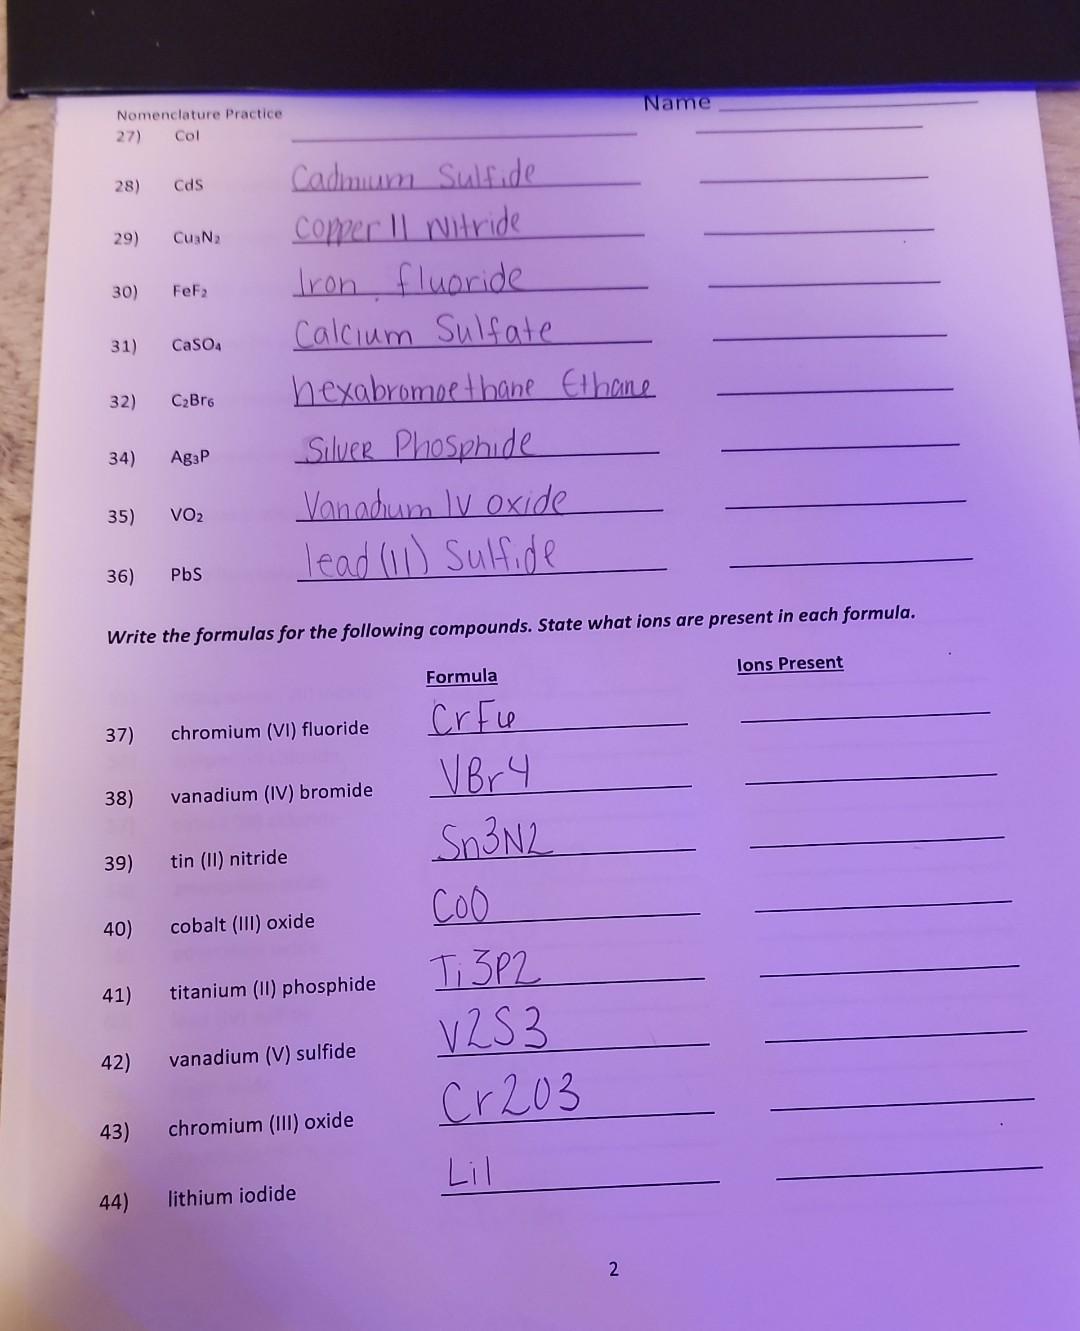 Name
Nomenclature Practice
27) CoI
28) CdS Cadmium Sulfide
29) Cu₃N₂ Copper II Nitride
30) FeF₂ Iron fluoride
31) CaSO₄ Calcium Sulfate
32) C₂Br₆ hexabromoethane Ethane
34) Ag₃P Silver Phosphide
35) VO₂ Vanadium IV oxide
36) PbS lead (II) Sulfide
Write the formulas for the following compounds. State what ions are present in each formula.
Formula Ions Present
37) chromium (VI) fluoride CrF6
38) vanadium (IV) bromide VBr4
39) tin (II) nitride Sn3N2
40) cobalt (III) oxide CoO
41) titanium (II) phosphide Ti3P2
42) vanadium (V) sulfide V2S3
43) chromium (III) oxide Cr2O3
44) lithium iodide LiI
2